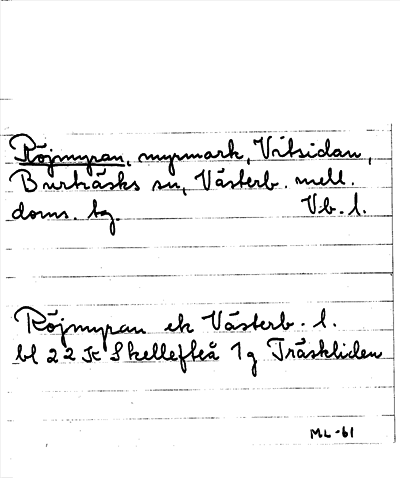 Röjmyran, myrmark, Vitsidan,
Burträsks sn, Västerb. mell.
doms. tg. Vb. l.
Röjmyran ek Västerb. l.
bl 22 K Skellefteå 1g Träskliden
ML-61